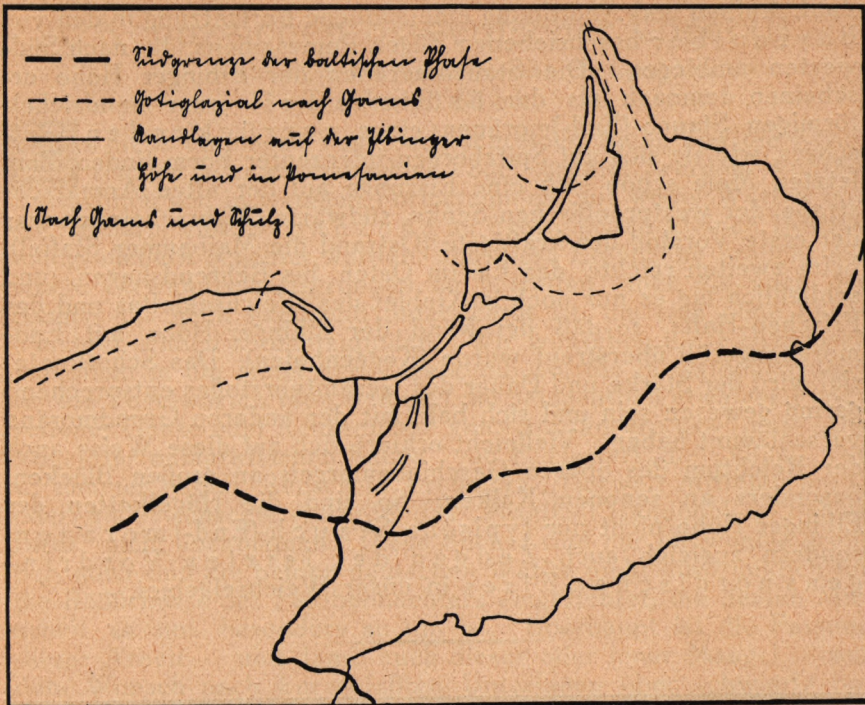 Südgrenze der baltischen Phase
Gotiglazial nach Gams
Randlagen auf der Elbinger
Höhe und in Pomesanien
(Nach Gams und Schulz)